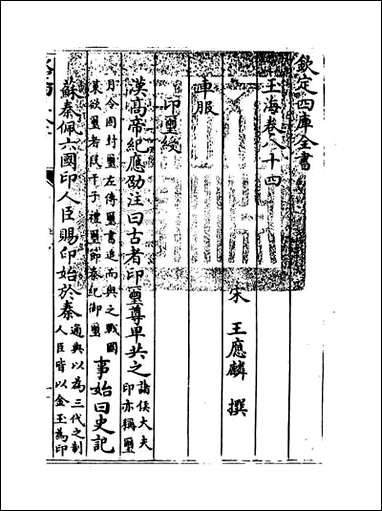 欽定四庫全書
玉海卷八十四
宋 王應麟 撰
車服
印璽綬
漢高帝紀應劭注曰古者印璽尊卑共之諸侯大夫印亦稱璽
月令固封璽左傳璽書追而與之戰國
策欲璽者段干子禮璽節秦紀御璽
事始曰史記
蘇秦佩六國印人臣賜印始於秦通典以為三代之制人臣皆以金玉為印